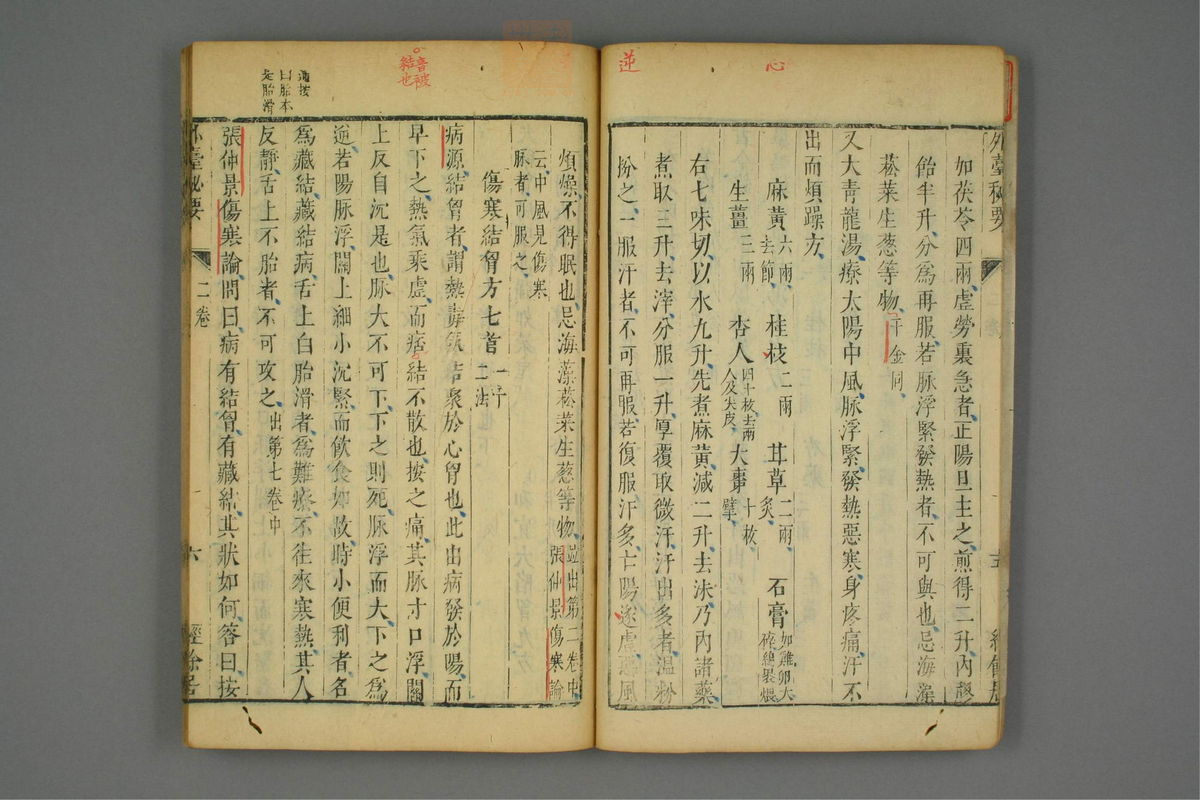 逆
心
外臺秘要
五
如茯苓四兩虛勞裏急者正陽旦主之煎得二升内膠
飴半升分爲再服若脉浮緊發熱者不可與也忌海藻
菘菜生葱等物千金同
又大青龍湯療太陽中風脉浮緊發熱惡寒身疼痛汗不
出而煩躁方
麻黃六兩去節 桂枝二兩 甘草二兩炙 石膏如雞卵大碎緜裹煨
生薑三兩 杏人四十枚去兩人及尖皮 大棗十枚擘
右七味切以水九升先煮麻黃減二升去沬乃内諸藥
煮取三升去滓分服一升厚覆取微汗汗出多者温粉
扮之一服汗者不可再服若復服汗多亡陽遂虛惡風
音被
結也
煩燥不得眠也忌海藻菘菜生葱等物竝出第二卷中張仲景傷寒論
云中風見傷寒脉者可服之
傷寒結胷方七首一十二法
病源結胷者謂熱毒氣結聚於心胷也此由病發於陽而
早下之熱氣乘虛而痞結不散也按之痛其脉寸口浮關
上反自沉是也脉大不可下下之則死脉浮而大下之爲
逆若陽脉浮關上細小沉緊而飲食如故時小便利者名
爲藏結藏結病舌上白胎滑者爲難療不往來寒熱其人
反靜舌上不胎者不可攻之出第七卷中
張仲景傷寒論問曰病有結胷有藏結其狀如何答曰按
外臺秘要
二卷
六
經餘居